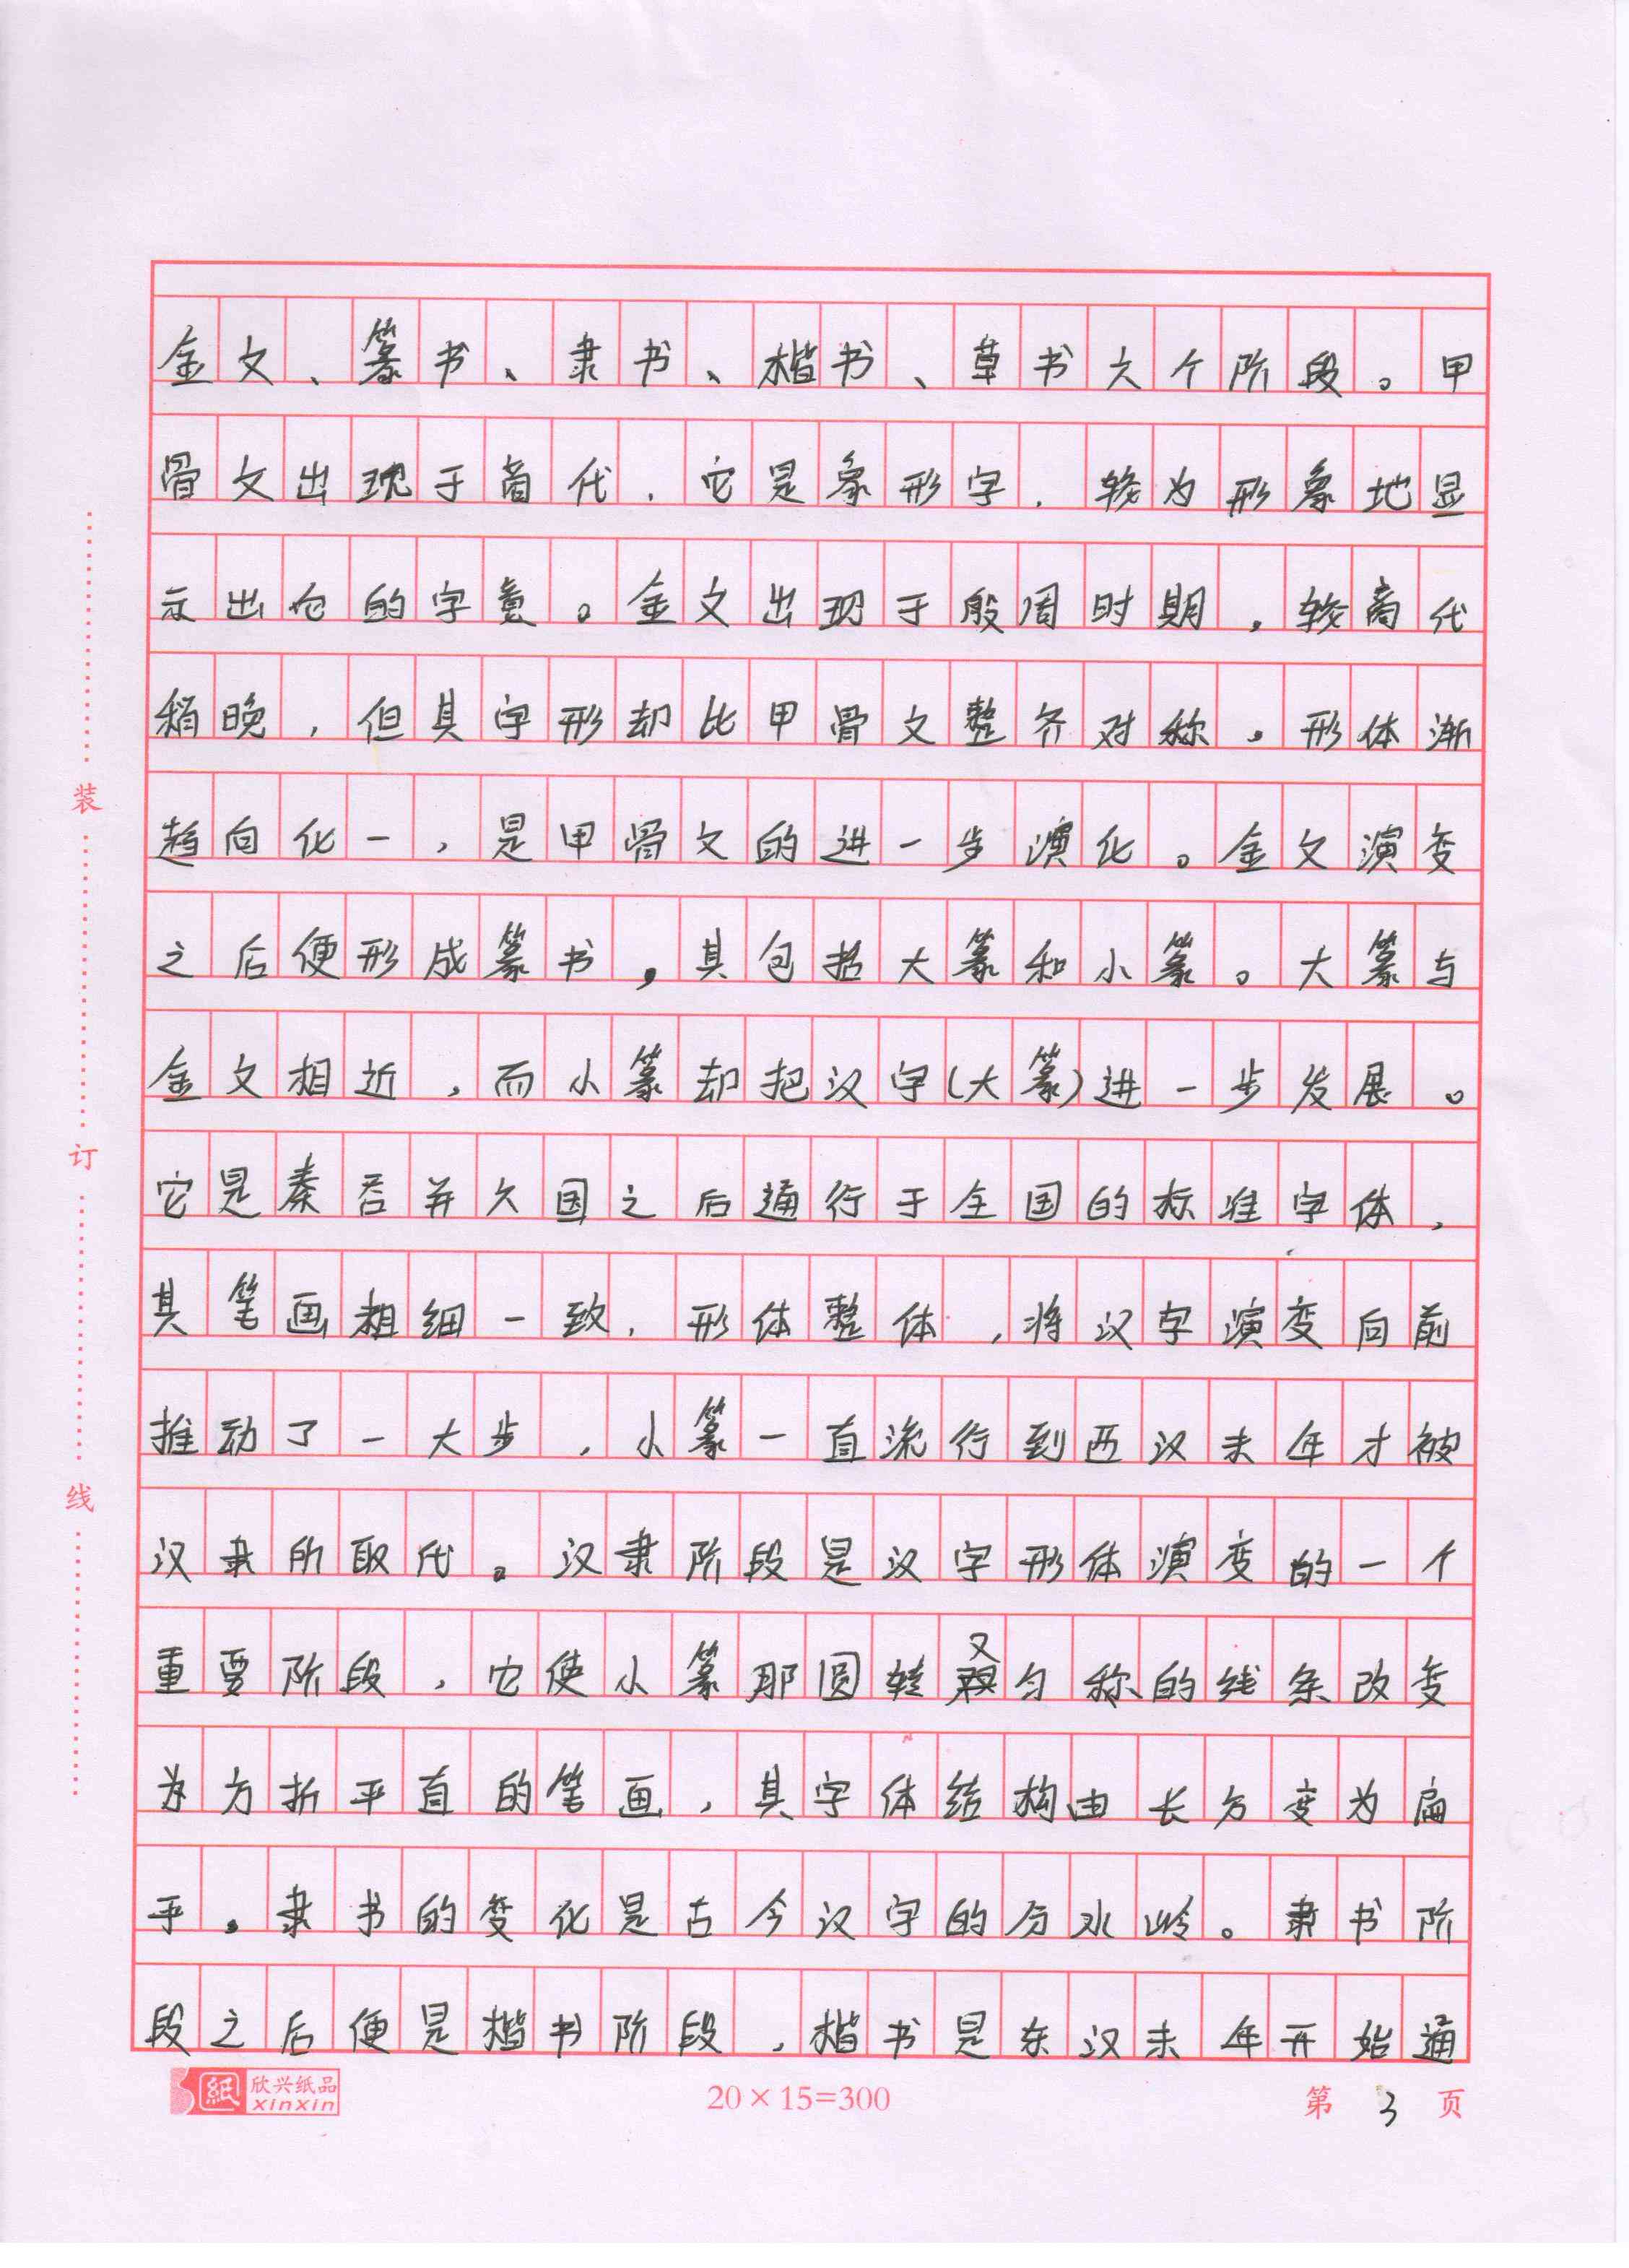 金文、篆书、隶书、楷书、草书六个阶段。甲
骨文出现于商代，它是象形字，较为形象地显
示出它的字意。金文出现于殷周时期，较商代
稍晚，但其字形却比甲骨文整齐对称，形体渐
趋向化一，是甲骨文的进一步演化。金文演变
之后便形成篆书，其包括大篆和小篆。大篆与
金文相近，而小篆却把汉字(大篆)进一步发展。
它是秦吞并六国之后通行于全国的标准字体，
其笔画粗细一致，形体整体，将汉字演变向前
推动了一大步，小篆一直流行到西汉末年才被
汉隶所取代。汉隶阶段是汉字形体演变的一个
重要阶段，它使小篆那圆转又匀称的线条改变
为方折平直的笔画，其字体结构由长方变为扁
平。隶书的变化是古今汉字的分水岭。隶书阶
段之后便是楷书阶段，楷书是东汉末年开始通
装
订
线
纸 欣兴纸品
xinxin
20×15=300
第 3 页